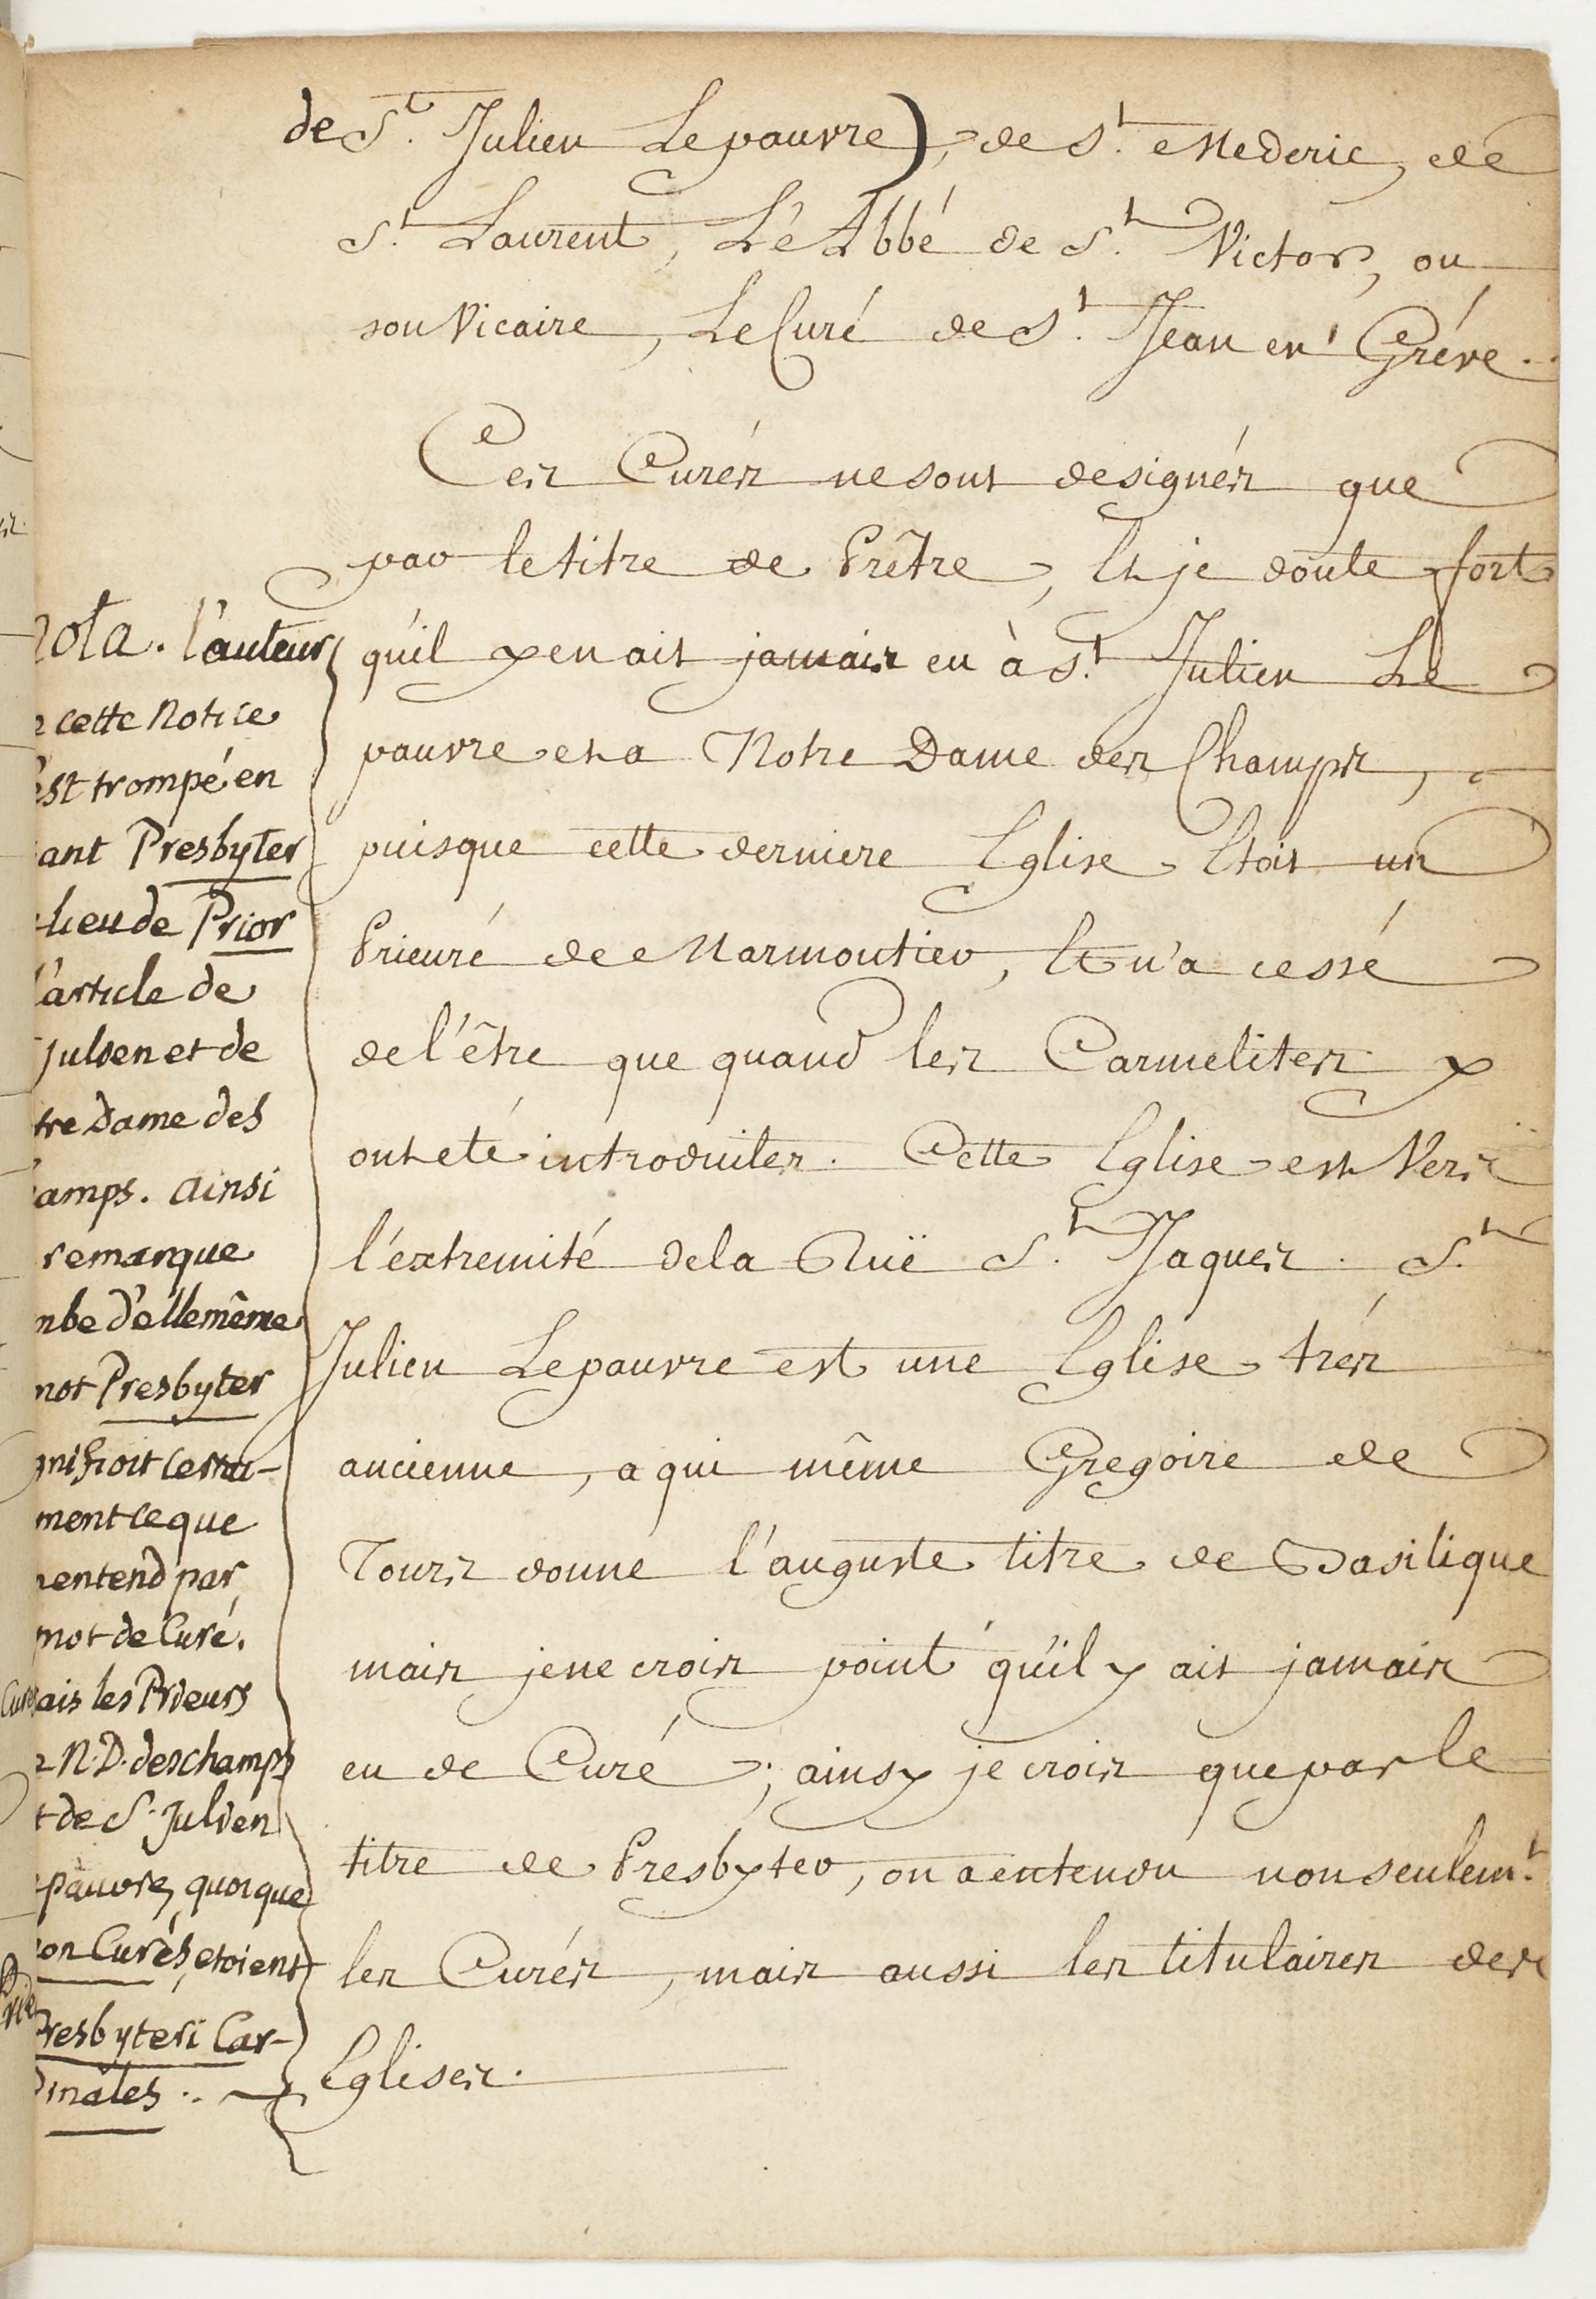 de St. Julien Le pauvre), de St. Mederic, de
St. Laurent, L'Abbé de St. Victor, ou
son Vicaire, Le Curé de St. Jean en Gréve.
Ces Curés ne sont designés que
par le titre de Prêtre, Et je doute fort
qu'il y en ait jamais eu à St. Julien Le
pauvre et a Notre Dame des Champs,
puisque cette derniere Eglise Etoit un
Prieuré de Marmoutier, Et n'a cessé
de l'être que quand les Carmelites y
ont eté introduites. Cette Eglise est Vers
l'extremité de la Ruë St. Jaques. St.
Julien Le pauvre est une Eglise trés
ancienne, a qui même Gregoire de
Tours donne l'auguste titre de Basilique
mais je ne crois point qu'il y ait jamais
eu de Curé; ainsy je crois que par le
titre de Presbyter, on a entendu non seulemt.
les Curés, mais aussi les titulaires des
Eglises.
nota. l'auteur
cette Notice
est trompé en
ant Presbyter
lieu de Prior
l'article de
Julien et de
tre Dame des
amps. ainsi
remarque
mbe d'elle même
mot Presbyter
gnifioit
ment ce que
entend par
mot de Curé.
ais les Prieurs
N. D. des champs
t de St. Julien
pauvre, quoique
non Curés, etoient
Presbyteri Car-
dinales.